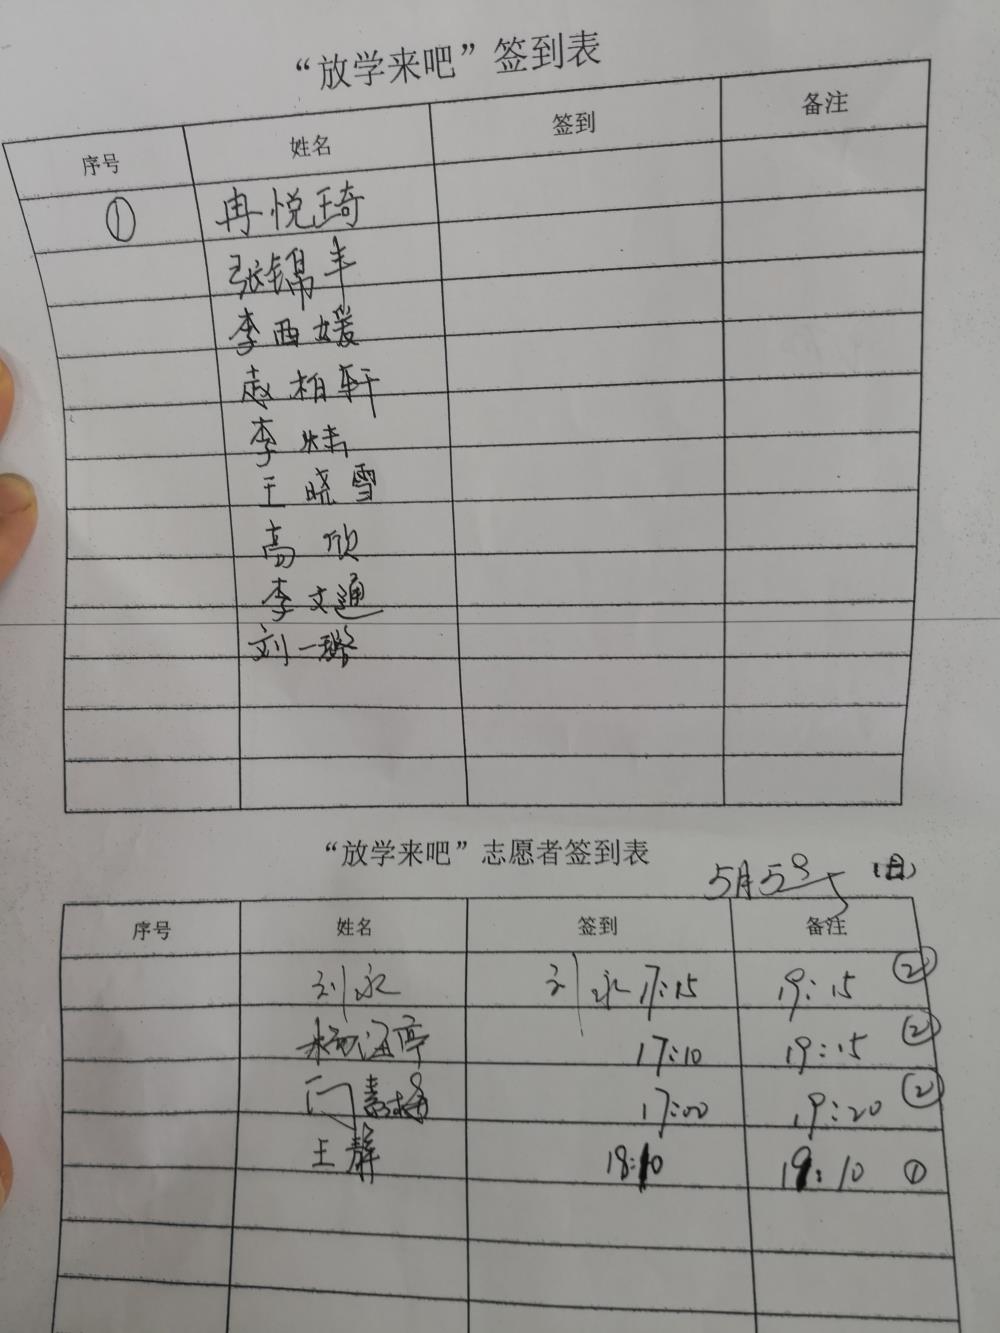 “放学来吧”签到表
序号 姓名 签到 备注
① 冉悦琦
张锦丰
李西媛
赵柏轩
李炜
王晓雪
高欣
李文通
刘一璐
“放学来吧”志愿者签到表
5月5号 (日)
序号 姓名 签到 备注
刘永 刘永 17:15 19:15 ②
杨海亭 17:10 19:15 ②
闫素梅 17:00 19:20 ②
王静 18:10 19:10 ①